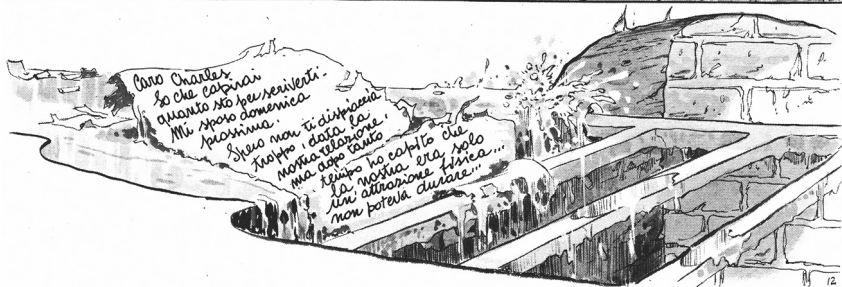 Caro Charles,
So che capirai
quanto sto per scriverti.
Mi sposo domenica
prossima.
Spero non ti dispiaccia
troppo, data la
nostra relazione,
ma dopo tanto
tempo ho capito che
la nostra era solo
un'attrazione fisica...
non poteva durare...
12